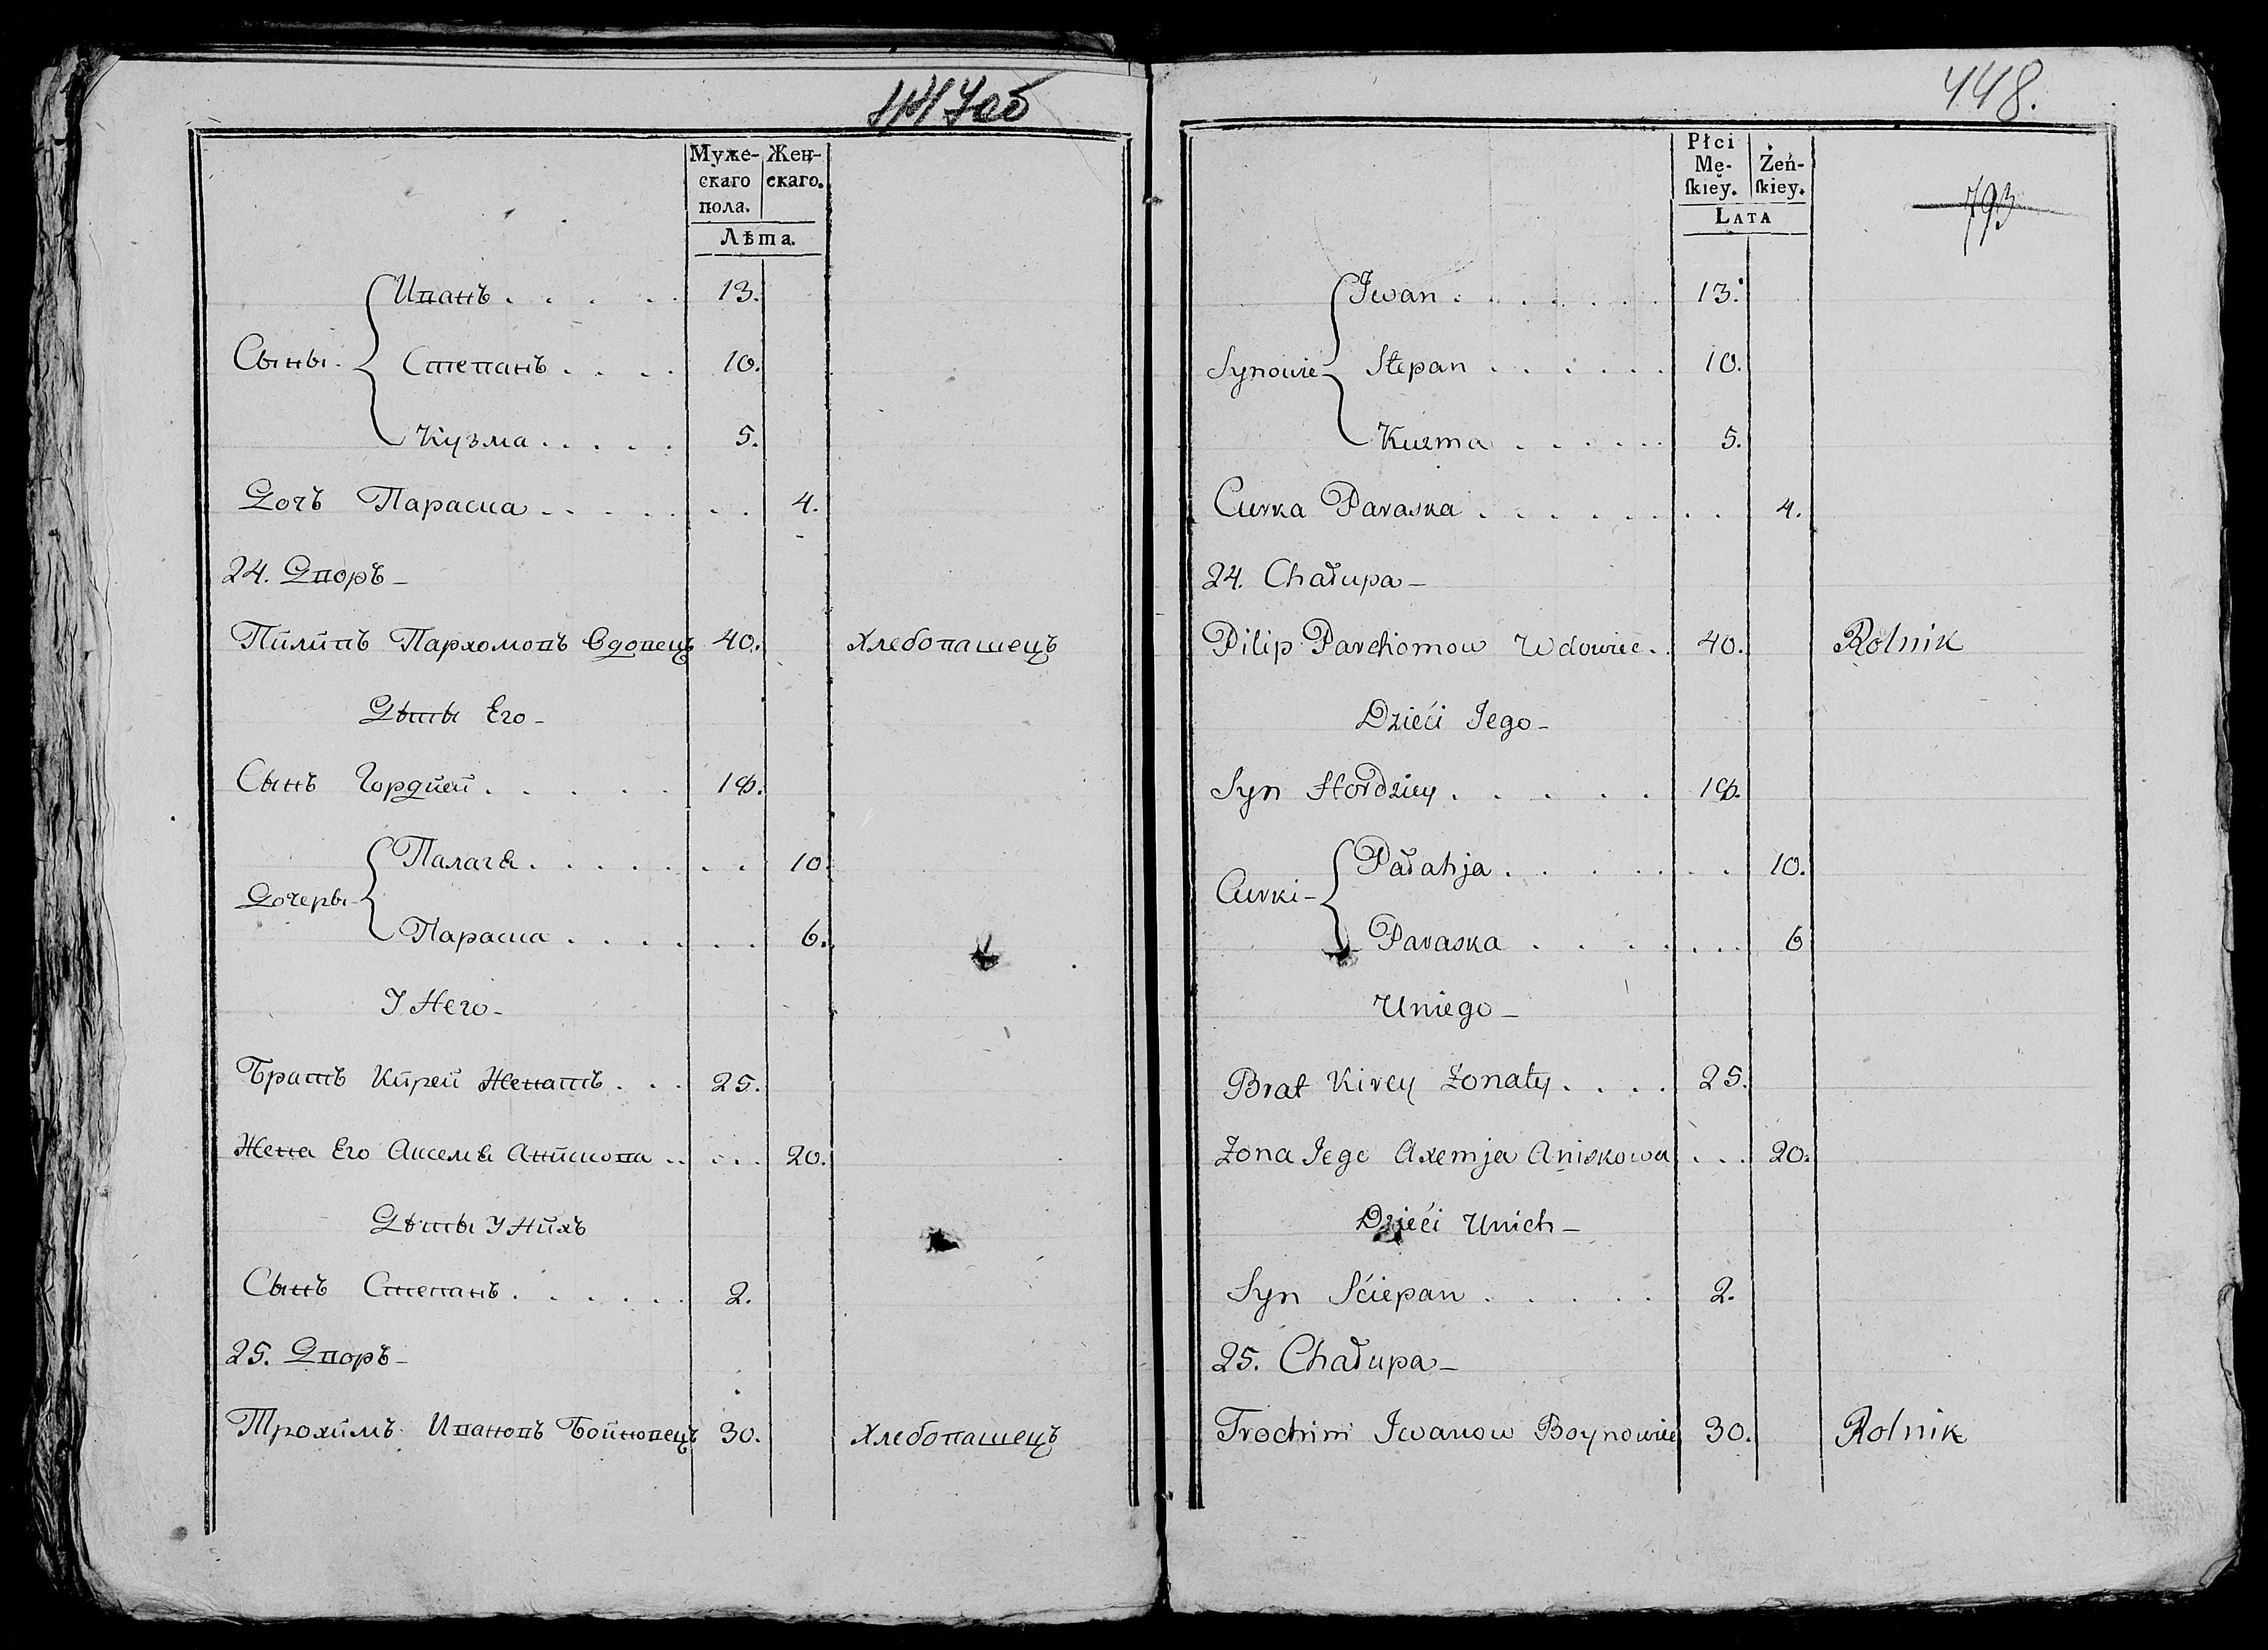 447об
Муже-
скаго
пола.
Жен-
скаго.
Лѣта.
Иванъ . . . . . 13.
Сыны
Степанъ . . . . 10.
Кузма . . . . . 5.
Дочъ Параска . . . . . . . 4.
24. Дворъ
Пилипъ Пархомовъ Вдовецъ 40. Хлебопашецъ
Дѣты Его
Сынъ Гордѣй . . . . .
Палагѣ . . . . . . . 10.
Дочеры
Параска . . . . . . 6.
У Него
Братъ Кирей Женатъ . . . 25.
Жена Его Аксемѣ Анискова . . . . . 20.
Дѣты У Нихъ
Сынъ Степанъ . . . . . . 2.
25. Дворъ
Трохимъ Ивановъ Бойновецъ 30. Хлебопашецъ
448.
Płci
Mę-
skiey.
Żeń-
skiey.
Lata
793
Jwan . . . . . . 13.
Synowie
Stepan . . . . . . 10.
Kuzma . . . . . 5.
Curka Paraska . . . . . . . . 4.
24. Chałupa
Pilip Parchomow Wdowiec . 40. Rolnik
Dzieći Jego
Syn Hordziey . . . . .
Pałahja . . . . . . . 10.
Curki
Paraska . . . . . . . 6
Uniego
Brat Kirey Żonaty . . . . 25.
Żona Jego Axemja Aniskowa . . . 20.
Dzieći Unich
Syn Sciepan . . . . . 2.
25. Chałupa
Trochim Jwanow Boynowiec 30. Rolnik